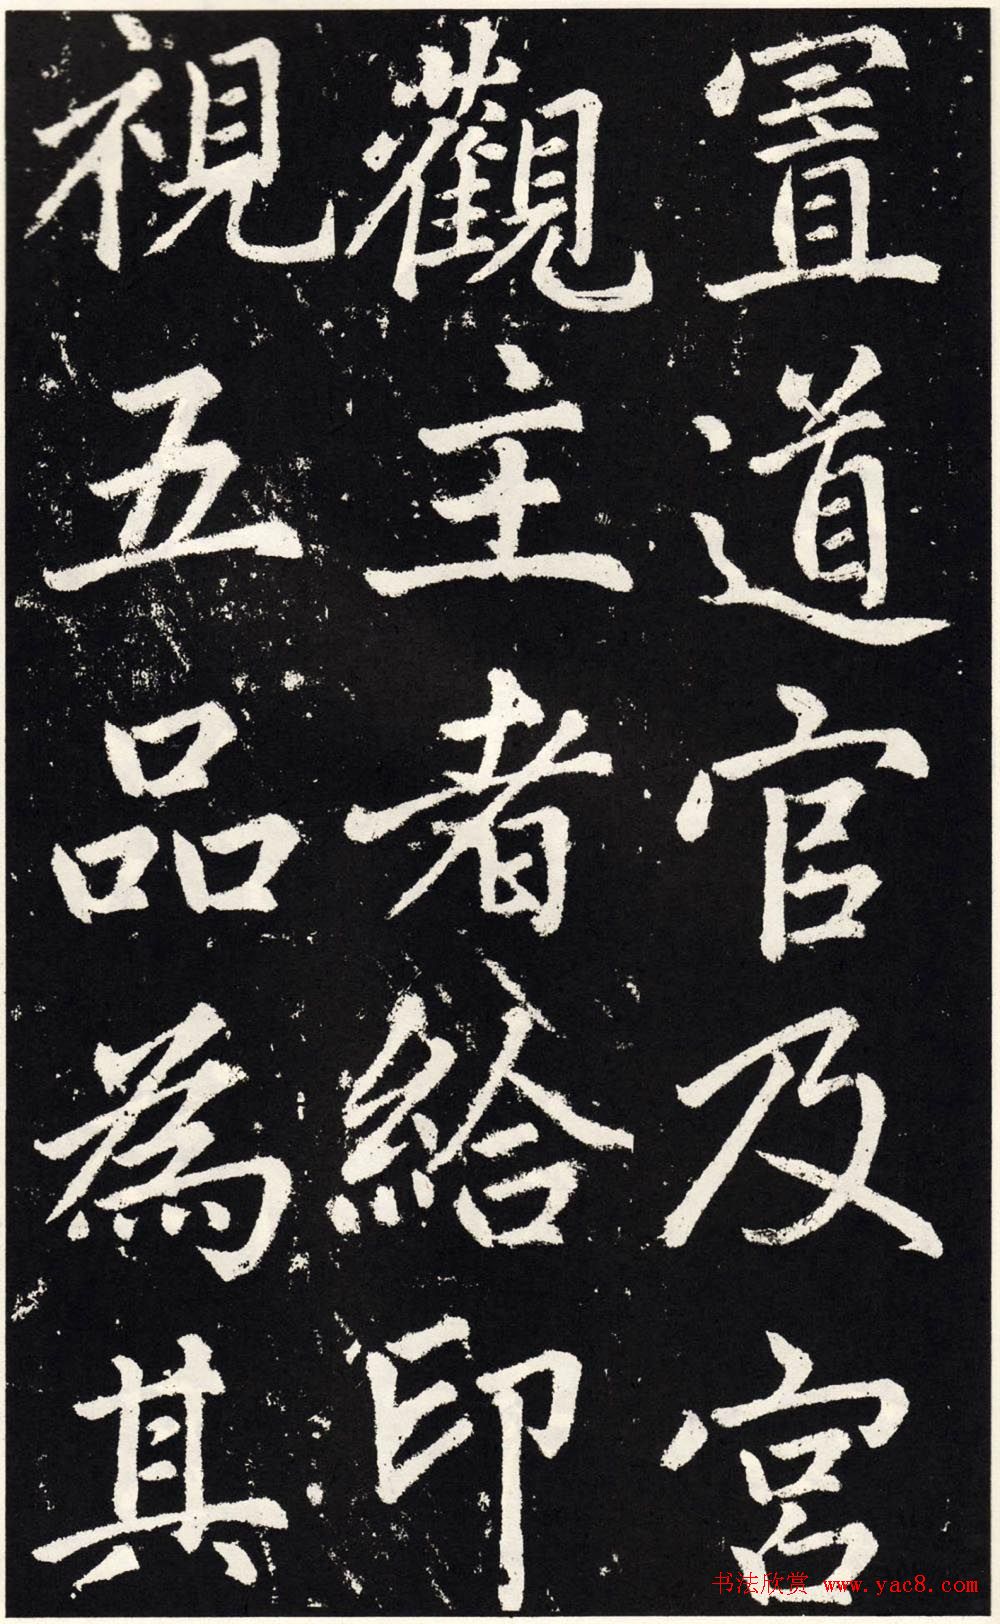 置道官及宮
觀主者給印
視五品為其
书法欣赏 www.yac8.com